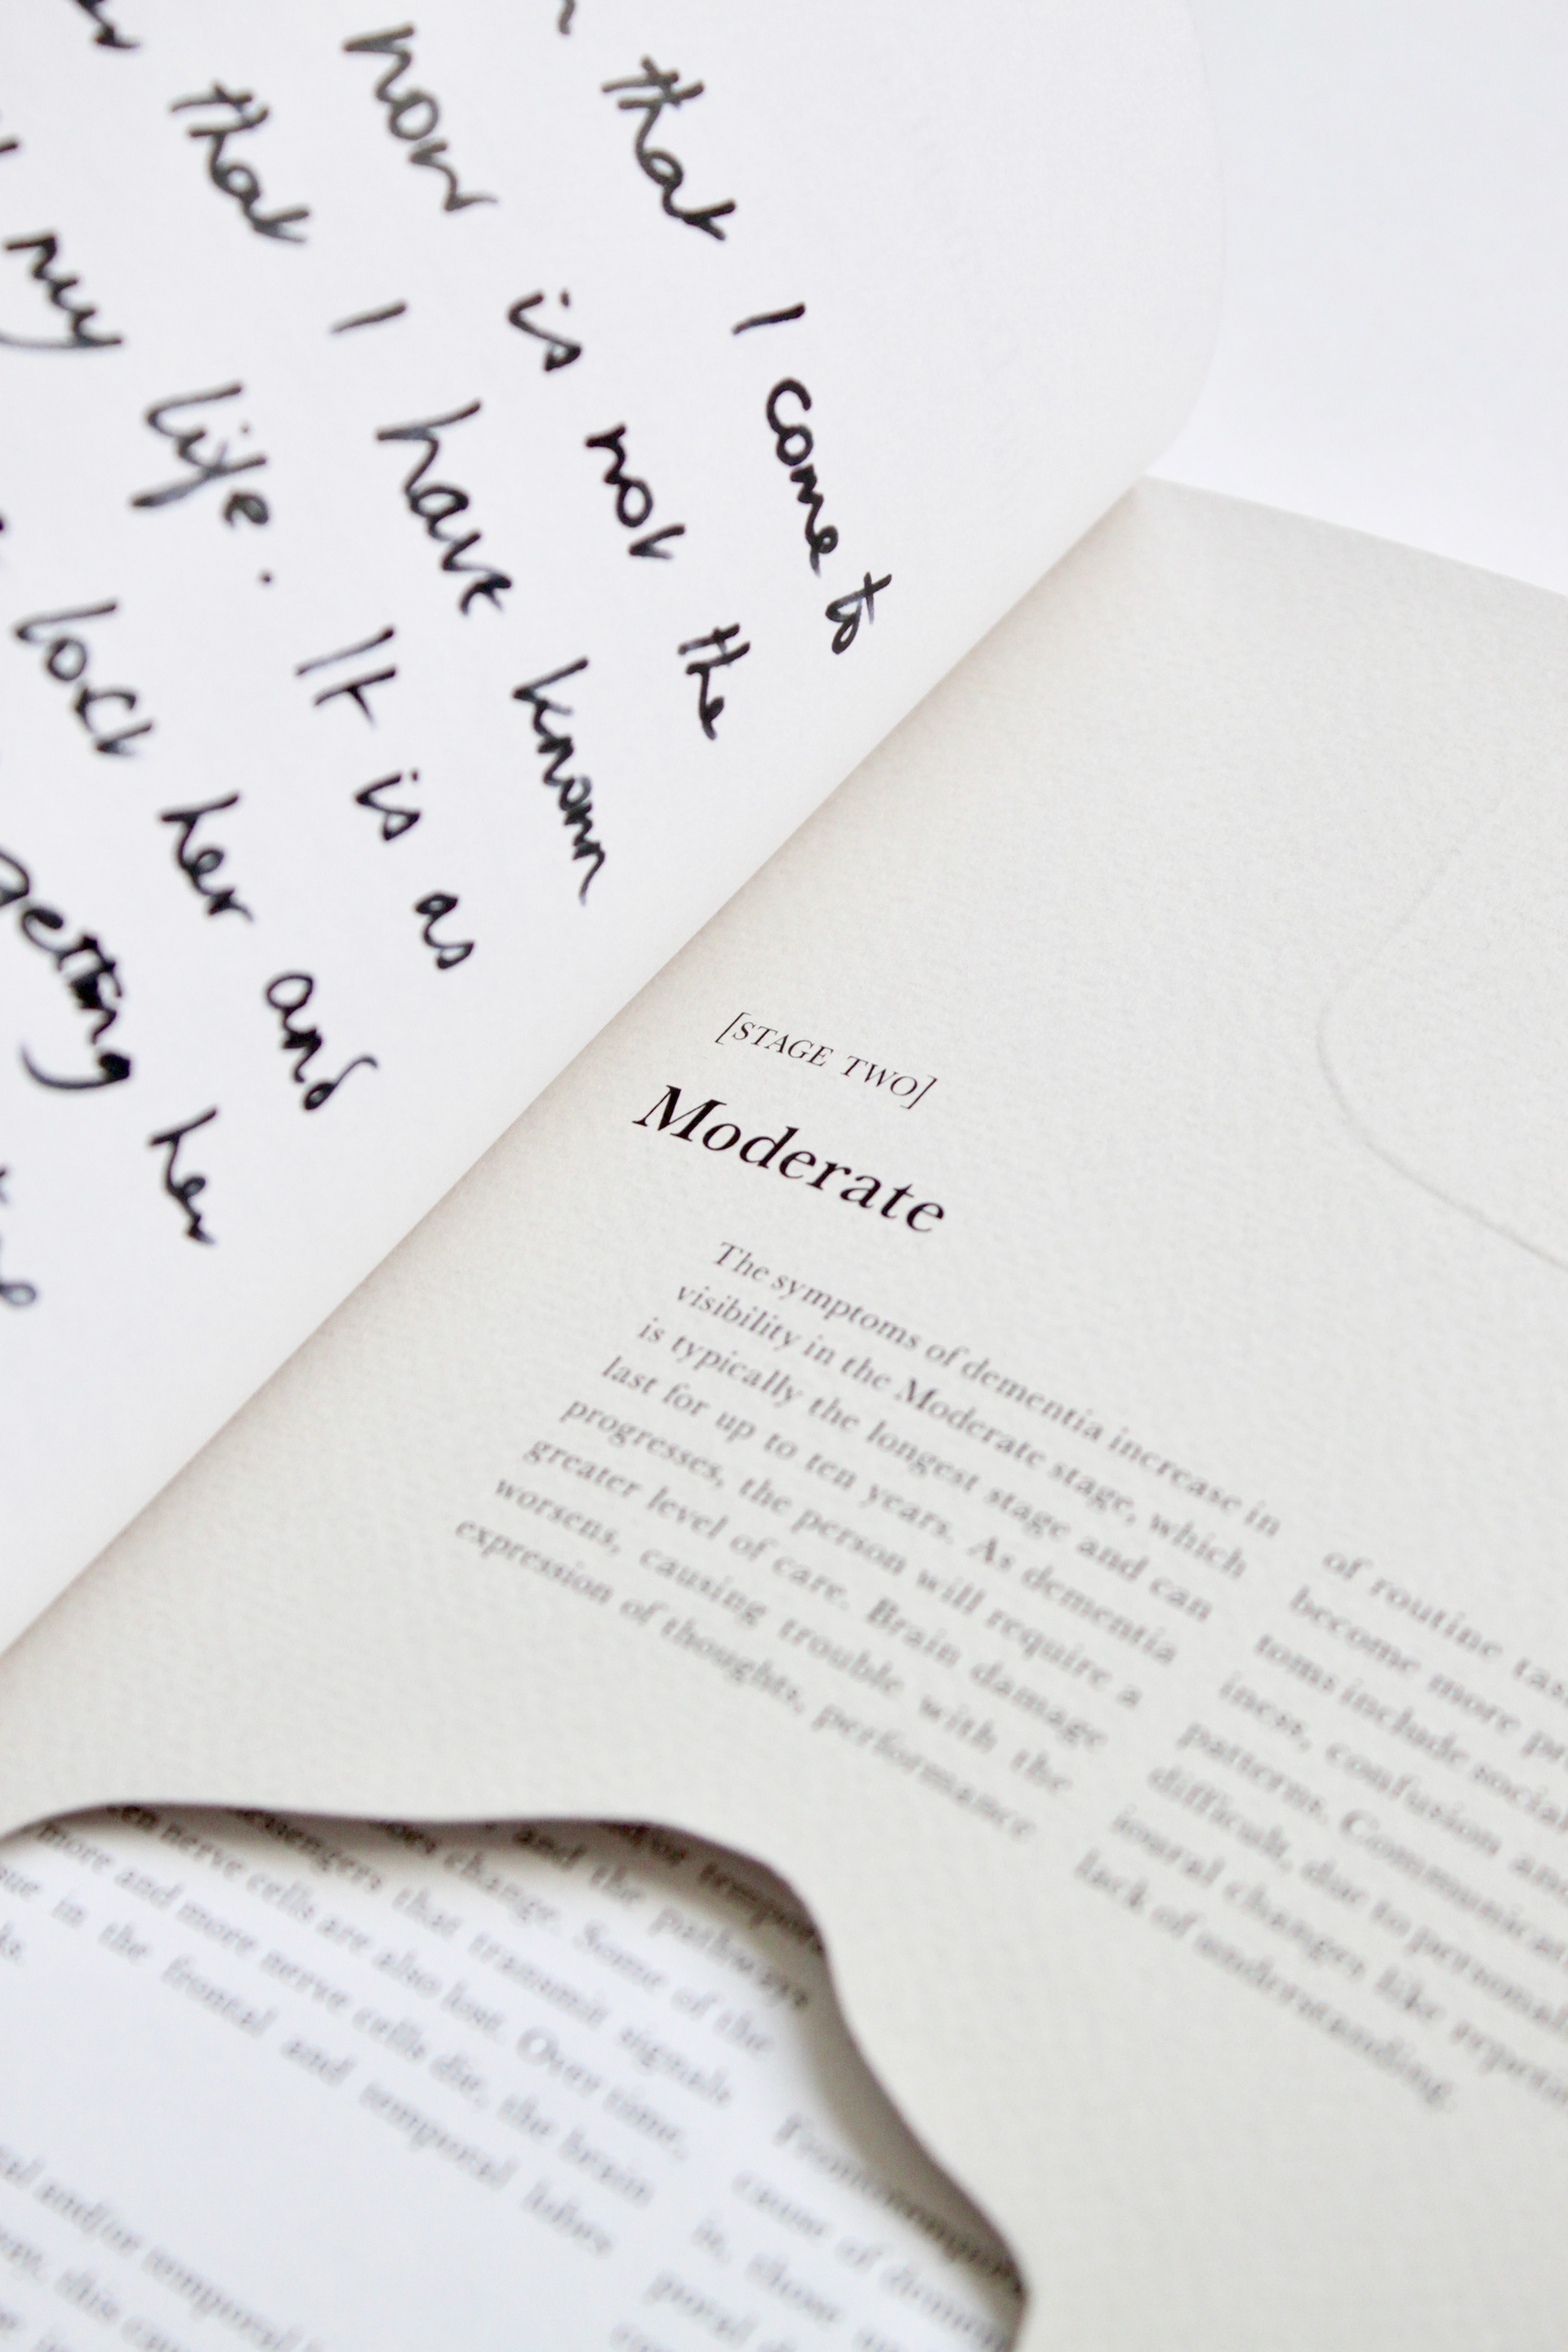 that I come to
now is not the
that I have known
my life. It is as
lost her and
getting her
[STAGE TWO]
Moderate
The symptoms of dementia increase in
visibility in the Moderate stage, which
is typically the longest stage and can
last for up to ten years. As dementia
progresses, the person will require a
greater level of care. Brain damage
worsens, causing trouble with the
expression of thoughts, performance
of routine
become more
toms include social
iness, confusion and
patterns.
difficult, due to personal
ioural changes like
lack of understanding.
and the pathways
change. Some of the
messengers that transmit signals
nerve cells are also lost. Over time,
more and more nerve cells die, the brain
in the frontal and temporal lobes
and/or temporal
this
cause of